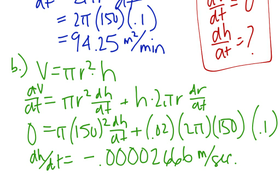 = 2π(150)(.1)
= 94.25 m²/min
dh/dt = ?
b.) V = πr²·h
dV/dt = πr² dh/dt + h·2πr dr/dt
0 = π(150)² dh/dt + (.02)(2π)(150)(.1)
dh/dt = -.00002666 m/sec.